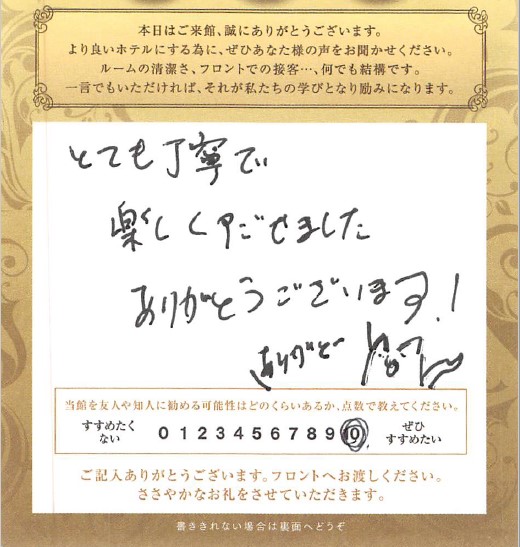 本日はご来館、誠にありがとうございます。
より良いホテルにする為に、ぜひあなた様の声をお聞かせください。
ルームの清潔さ、フロントでの接客…、何でも結構です。
一言でもいただければ、それが私たちの学びとなり励みになります。
とても丁寧で
楽しくすごせました
ありがとうございます!
ありがとー
当館を友人や知人に勧める可能性はどのくらいあるか、点数で教えてください。
すすめたくない 0 1 2 3 4 5 6 7 8 9 10 ぜひすすめたい
ご記入ありがとうございます。フロントへお渡しください。
ささやかなお礼をさせていただきます。
書ききれない場合は裏面へどうぞ